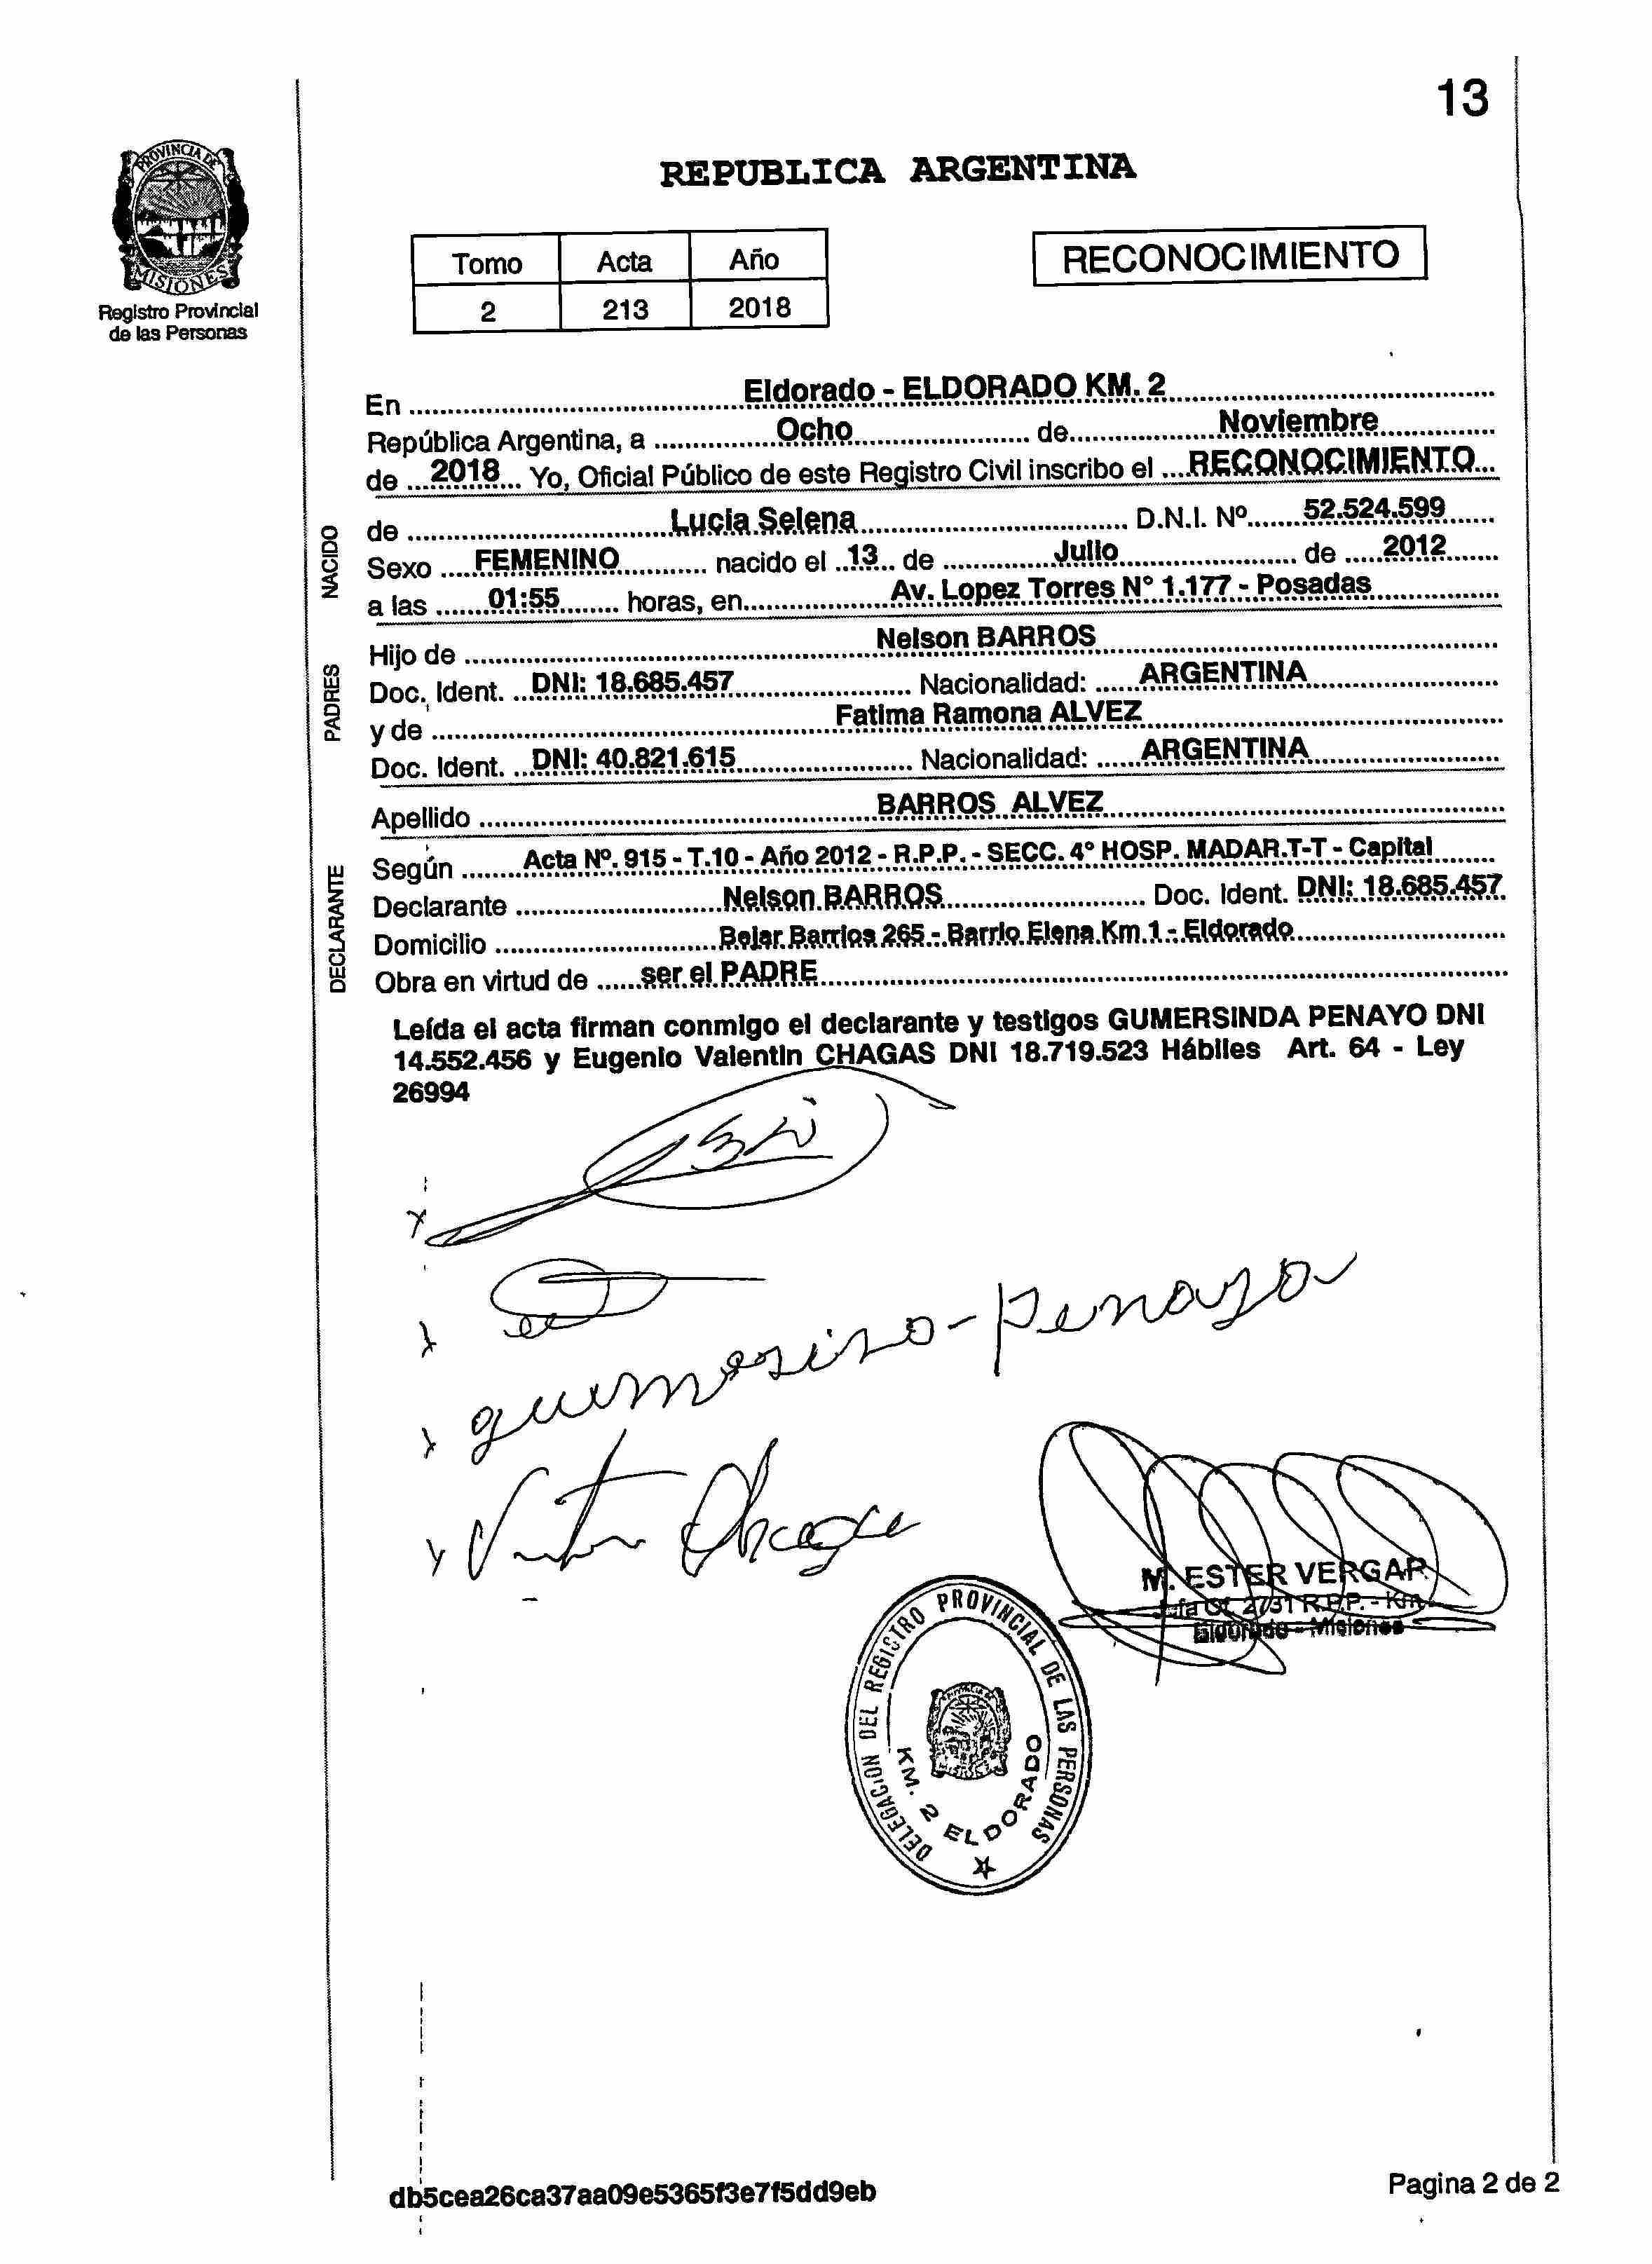 13
PROVINCIA DE
MISIONES
Registro Provincial
de las Personas
REPUBLICA ARGENTINA
Tomo Acta Año
2 213 2018
RECONOCIMIENTO
En Eldorado - ELDORADO KM. 2
República Argentina, a Ocho de Noviembre
de 2018 Yo, Oficial Público de este Registro Civil inscribo el RECONOCIMIENTO
NACIDO
de Lucia Selena D.N.I. Nº 52.524.599
Sexo FEMENINO nacido el 13 de Julio de 2012
a las 01:55 horas, en Av. Lopez Torres N° 1.177 - Posadas
PADRES
Hijo de Nelson BARROS
Doc. Ident. DNI: 18.685.457 Nacionalidad: ARGENTINA
y de Fatima Ramona ALVEZ
Doc. Ident. DNI: 40.821.615 Nacionalidad: ARGENTINA
Apellido BARROS ALVEZ
DECLARANTE
Según Acta Nº. 915 - T.10 - Año 2012 - R.P.P. - SECC. 4° HOSP. MADAR.T-T - Capital
Declarante Nelson BARROS Doc. Ident. DNI: 18.685.457
Domicilio Bejar Barrios 265 - Barrio Elena Km 1 - Eldorado
Obra en virtud de ser el PADRE
Leída el acta firman conmigo el declarante y testigos GUMERSINDA PENAYO DNI
14.552.456 y Eugenio Valentin CHAGAS DNI 18.719.523 Hábiles Art. 64 - Ley
26994
Penayo
Chagas
M. ESTER VERGAR
Of. 2731 R.P.P. - Km
Eldorado - Misiones
DELEGACION DEL REGISTRO PROVINCIAL DE LAS PERSONAS
KM. 2 ELDORADO
db5cea26ca37aa09e5365f3e7f5dd9eb
Pagina 2 de 2